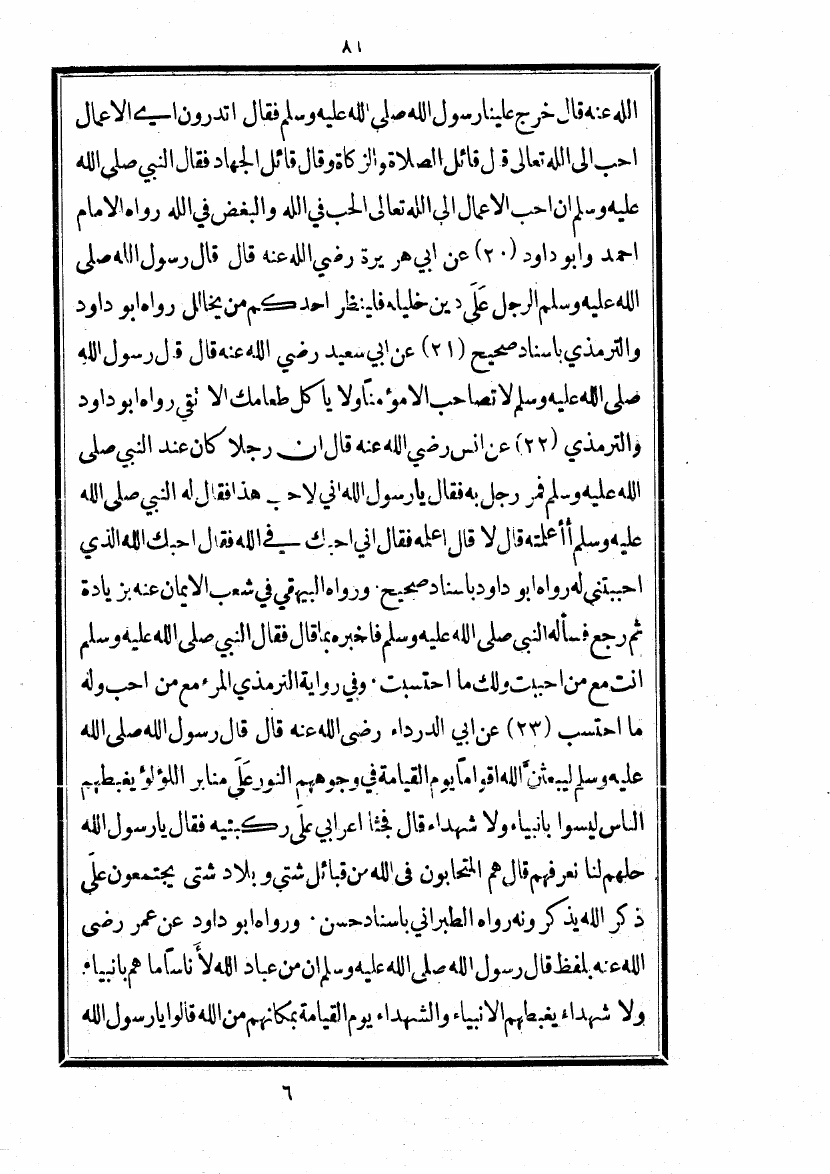 ٨١
الله عنه قال خرج علينا رسول الله صلى الله عليه وسلم فقال اتدرون اي الاعمال
احب الى الله تعالى قال قائل الصلاة والزكاة وقال قائل الجهاد فقال النبي صلى الله
عليه وسلم ان احب الاعمال الى الله تعالى الحب في الله والبغض في الله رواه الامام
احمد وابو داود (٢٠) عن ابي هريرة رضي الله عنه قال قال رسول الله صلى
الله عليه وسلم الرجل عَلَى دين خليله فلينظر احدكم من يخالل رواه ابو داود
والترمذي باسناد صحيح (٢١) عن ابي سعيد رضي الله عنه قال قال رسول الله
صلى الله عليه وسلم لا تصاحب الا مؤمناً ولا ياكل طعامك الا تقي رواه ابو داود
والترمذي (٢٢) عن انس رضي الله عنه قال ان رجلا كان عند النبي صلى
الله عليه وسلم فمر رجل به فقال يا رسول الله اني لاحب هذا فقال له النبي صلى الله
عليه وسلم أأعلمته قال لا قال اعلمه فقال اني احبك في الله فقال احبك الله الذي
احببتني له رواه ابو داود باسناد صحيح · ورواه البيهقي في شعب الايمان عنه بزيادة
ثم رجع فسأله النبي صلى الله عليه وسلم فاخبره بما قال فقال النبي صلى الله عليه وسلم
انت مع من احببت ولك ما احتسبت · وفي رواية الترمذي المرء مع من احب وله
ما احتسب (٢٣) عن ابي الدرداء رضى الله عنه قال قال رسول الله صلى الله
عليه وسلم ليبعثنَّ الله اقواماً يوم القيامة في وجوههم النور عَلَى منابر اللؤلؤ يغبطهم
الناس ليسوا بانبياء ولا شهداء قال فجثا اعرابي عَلَى ركبتيه فقال يا رسول الله
حلهم لنا نعرفهم قال هم المتحابون فى الله من قبائل شتى وبلاد شتى يجتمعون عَلَى
ذكر الله يذكرونه رواه الطبراني باسناد حسن · ورواه ابو داود عن عمر رضى
الله عنه بلفظ قال رسول الله صلى الله عليه وسلم ان من عباد الله لأناساً ما هم بانبياء
ولا شهداء يغبطهم الانبياء والشهداء يوم القيامة بمكانهم من الله قالوا يا رسول الله
٦